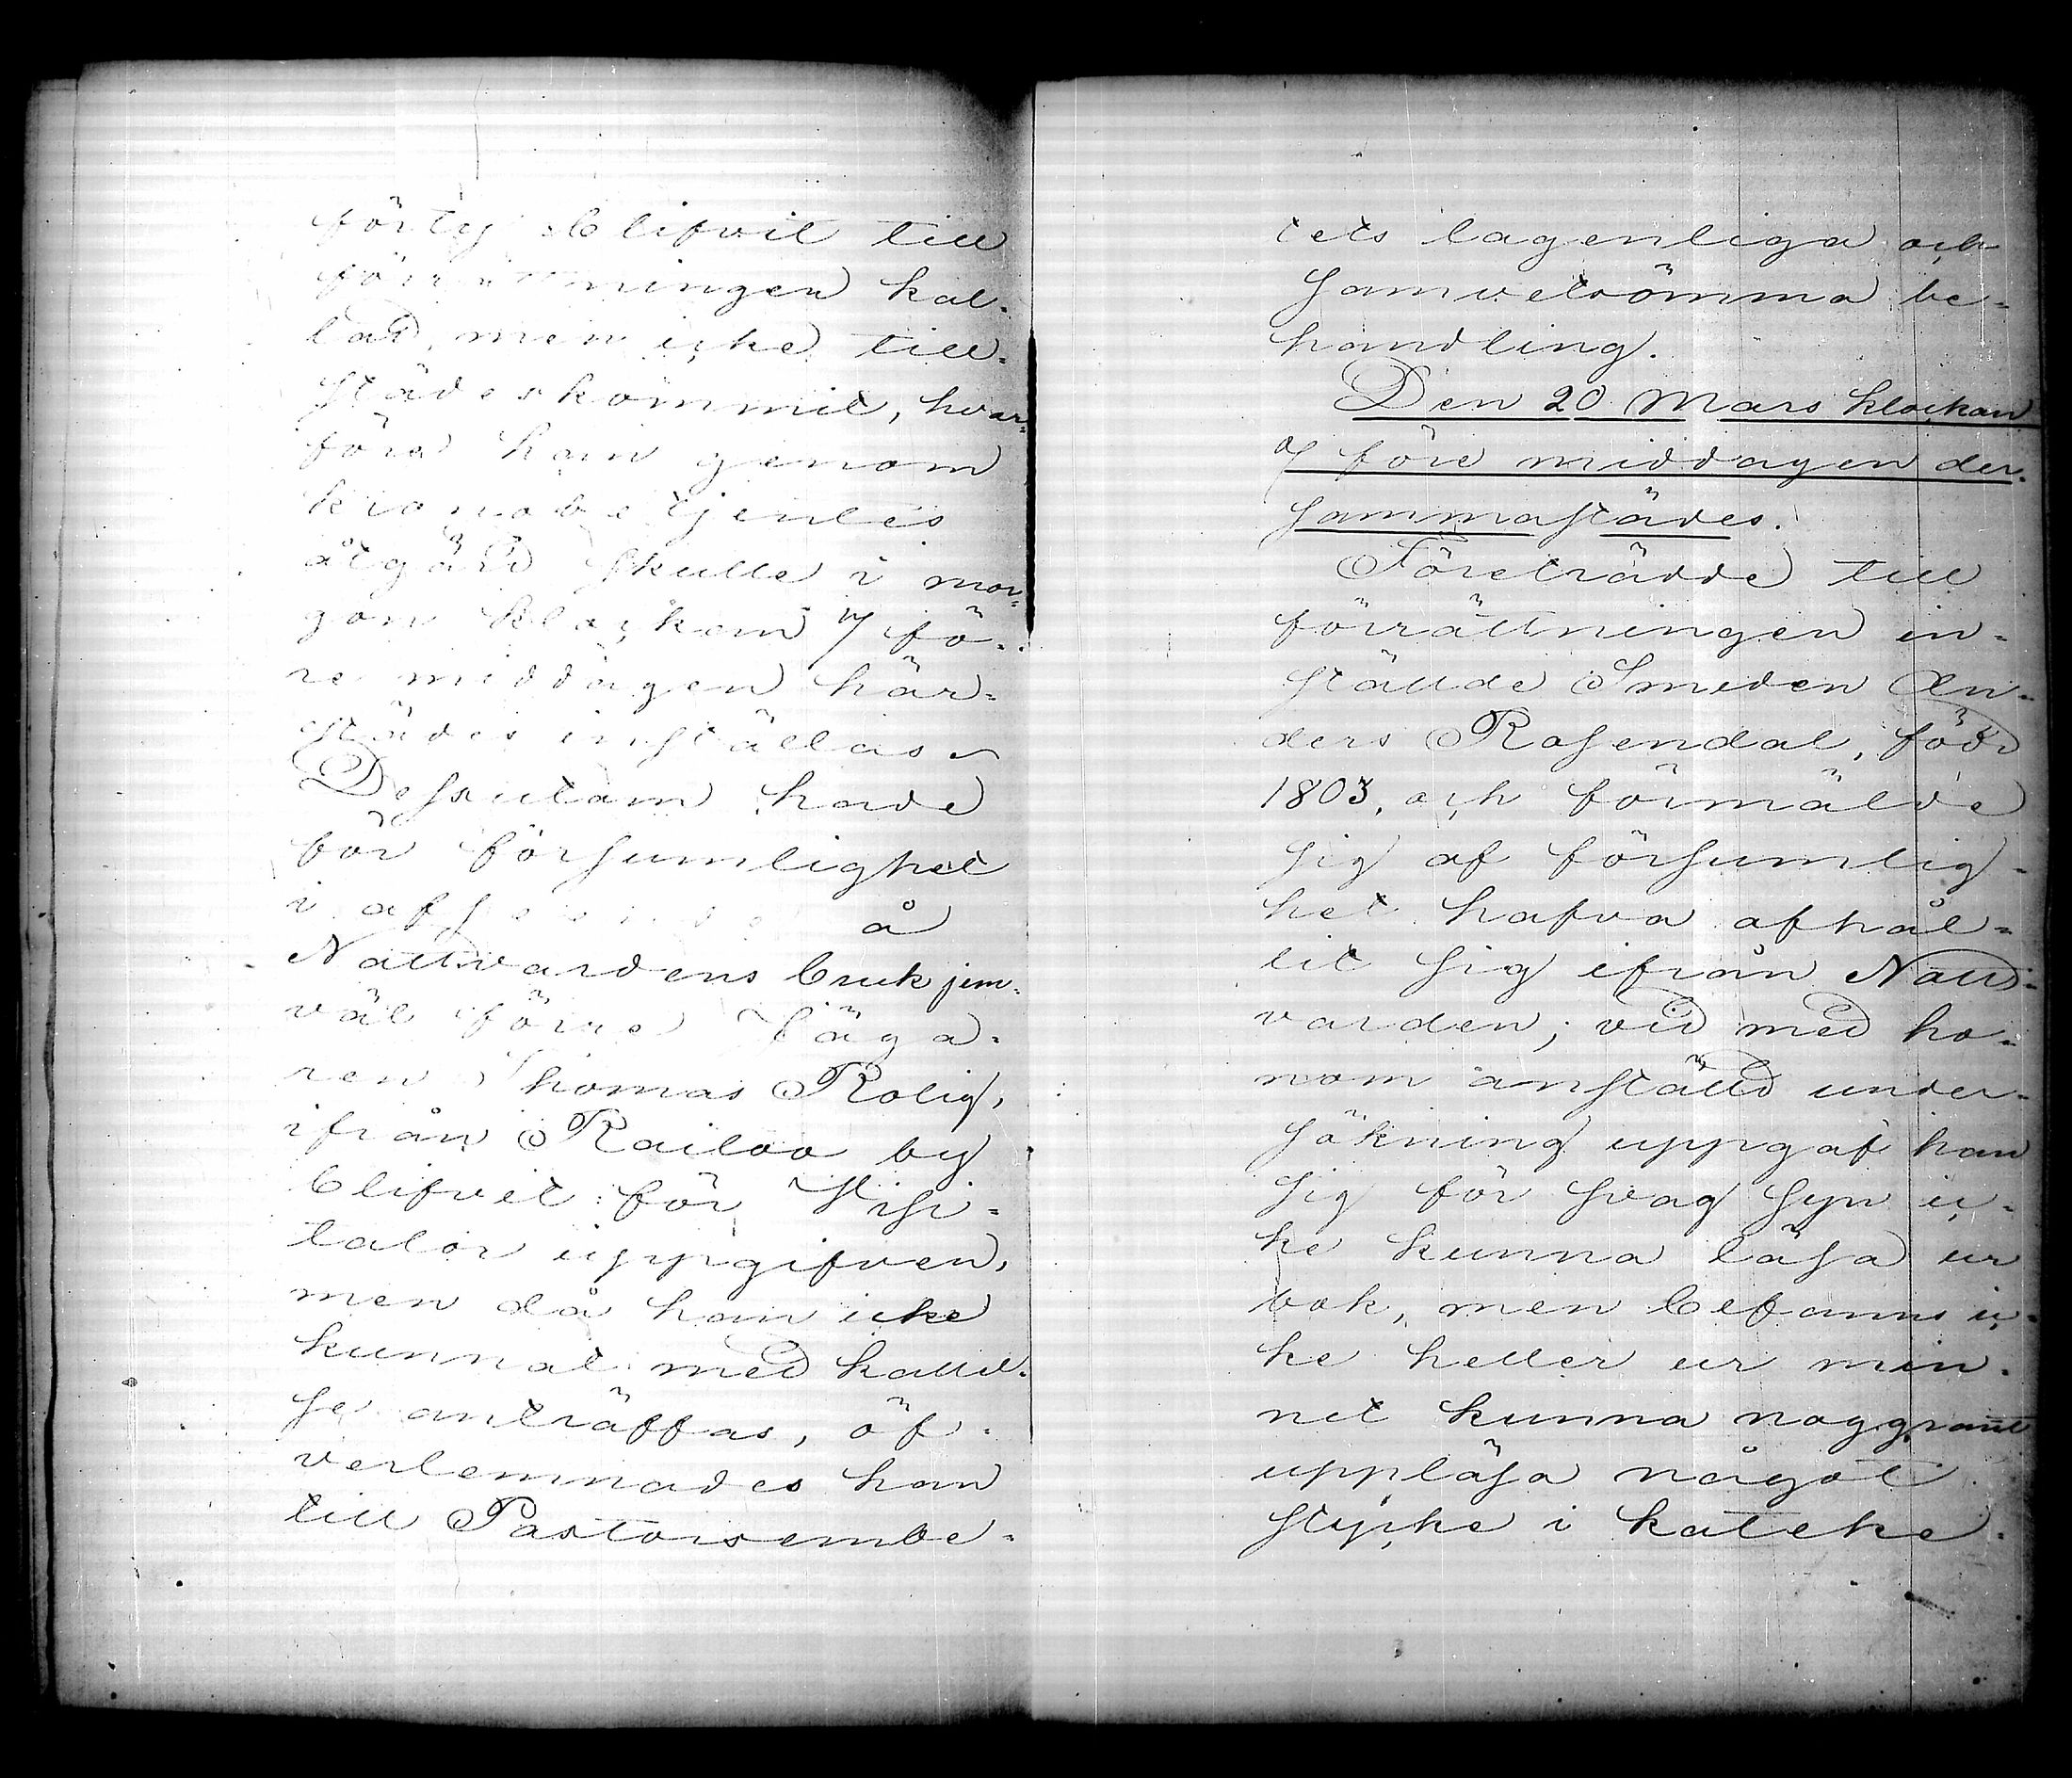 förty blifvit till
förrättningen kal-
lad, men icke till-
städeskommit, hvar-
före han genom
kronobetjentes
åtgärd skulle i mor-
gon klockan 7 fö-
re middagen här-
städes inställas.
Dessutom hade
för försumlighet
i afseende å
Nattvardens bruk jem-
väl förre Jäga-
ren Thomas Rolig,
ifrån Railoo by
blifvit för Visi-
tator uppgifven,
men då han icke
kunnat med kallel-
se anträffas, öf-
verlemnades han
till Pastorsembe-
tets lagenliga och
samvetsömma be-
handling.
Den 20 Mars klockan
7 före middagen der-
sammastädes.
Företrädde till
förrättningen in-
ställde Smeden An-
ders Rosendal, född
1803, och förmälde
sig af försumlig-
het hafva afhål-
lit sig ifrån Natt-
varden; vid med ho-
nom anställd under-
sökning uppgaf han
sig för svag syn ic-
ke kunna läsa ur
bok, men befanns ic-
ke heller ur min-
net kunna noggrant
uppläsa något
stycke i kateke-